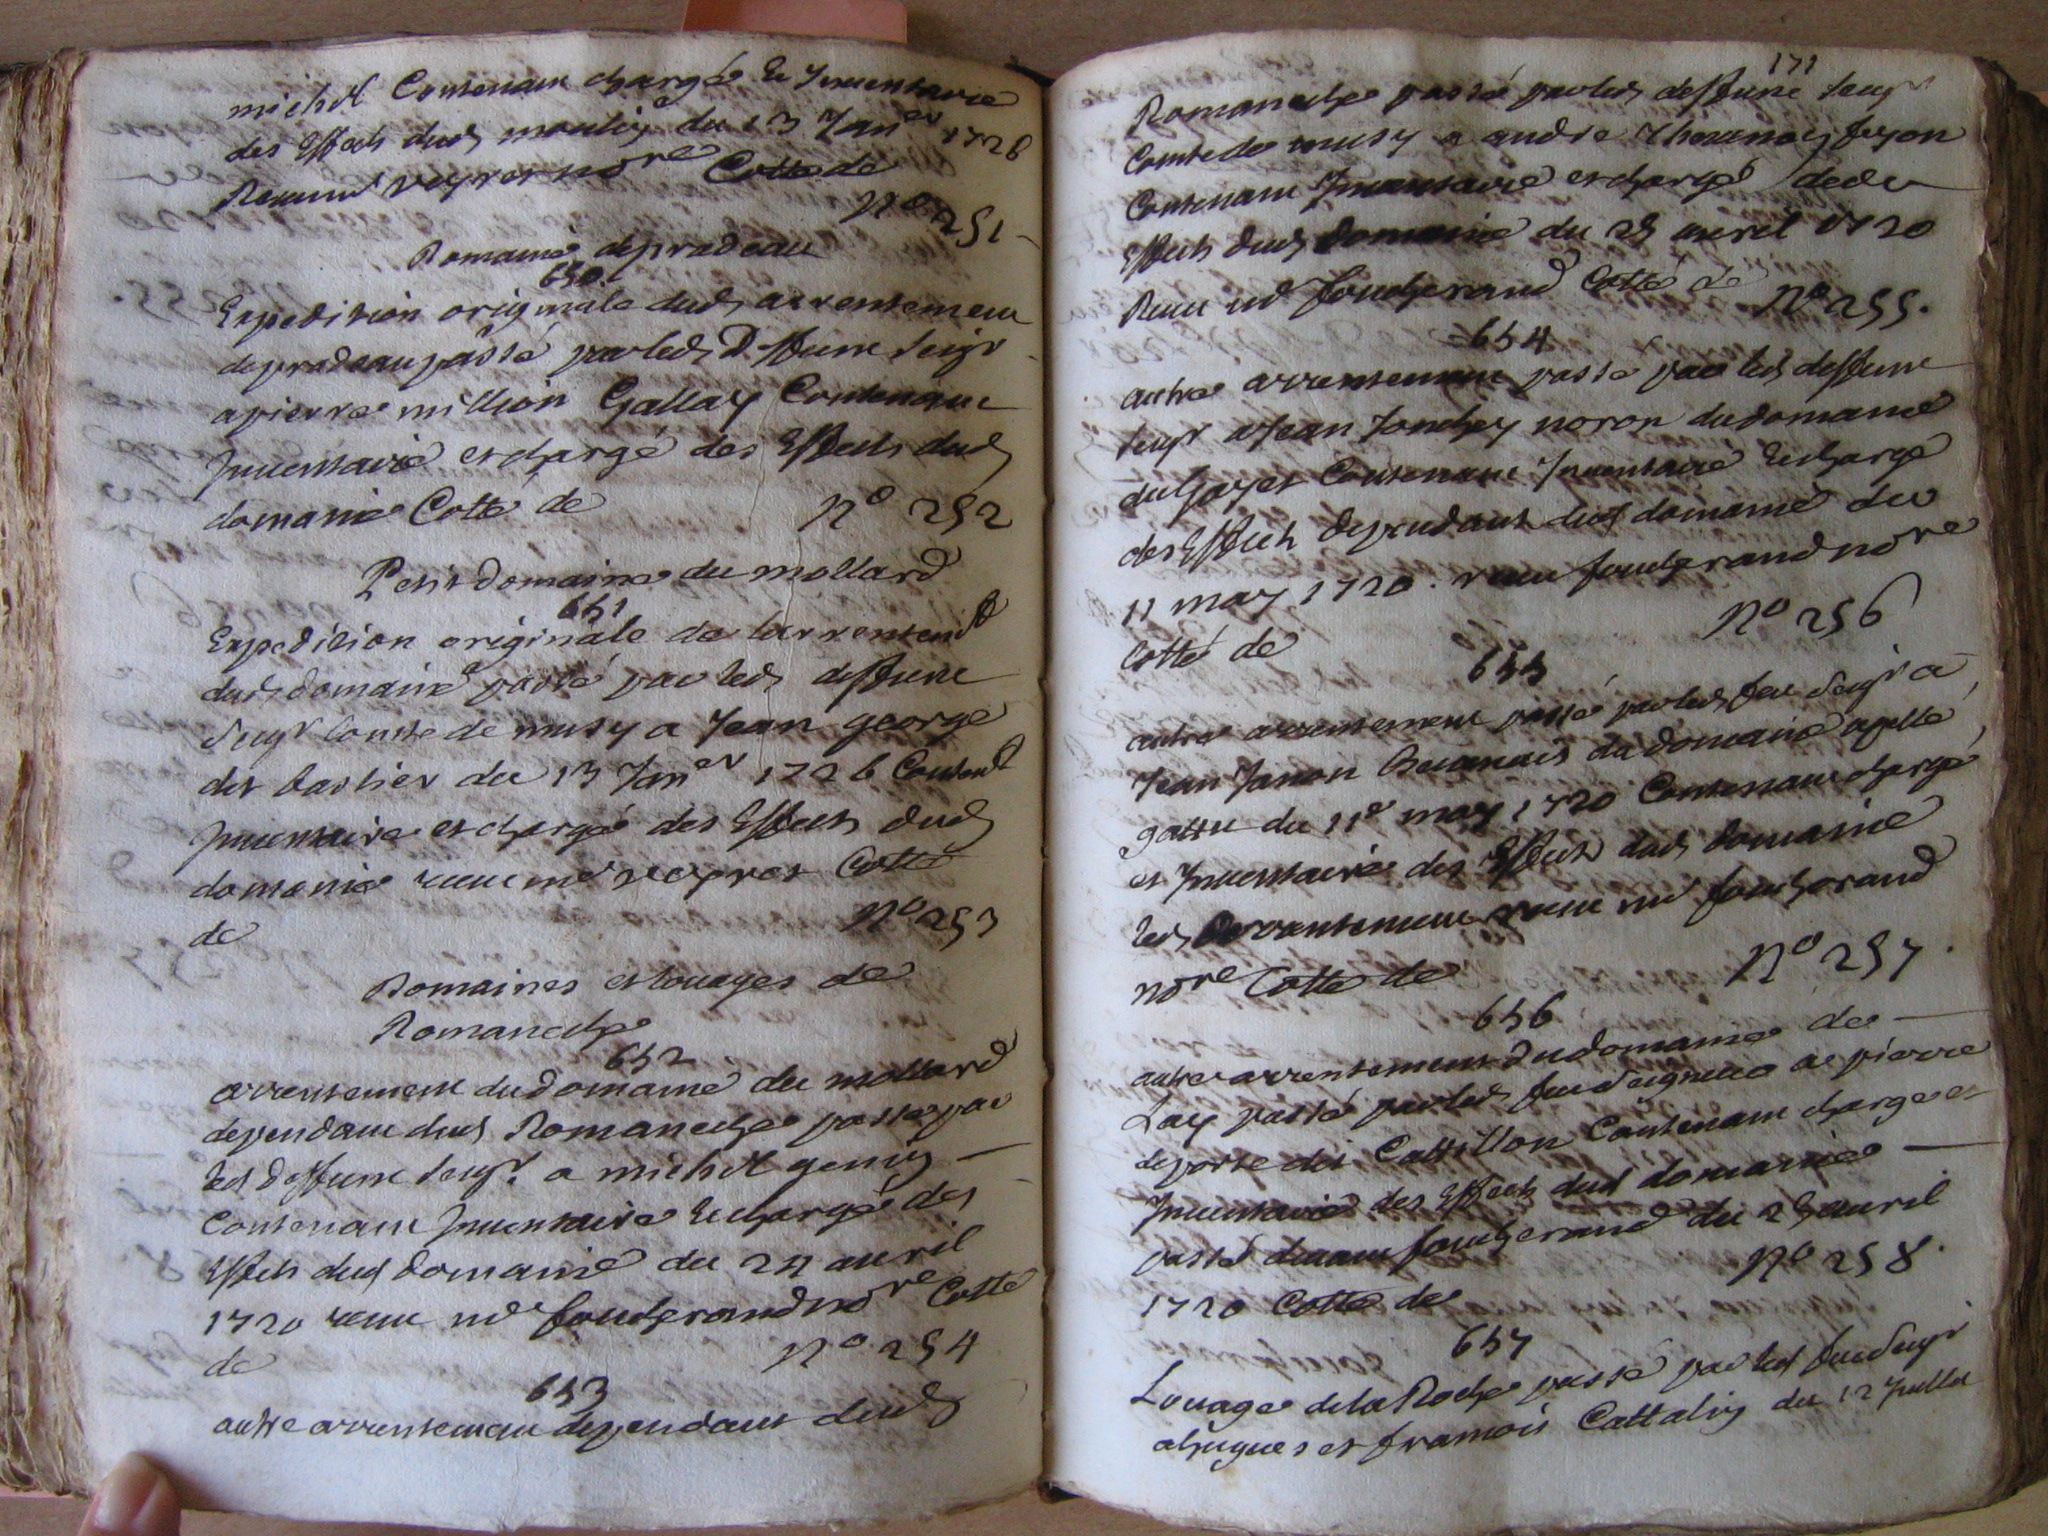 michel Contenant charge et Inventaire
des Effects dud moulin du 13 Janer 1726
Receu md veyret nore Cotte de
No 251
Domaine de pradeau
650
Expedition originale dud arrentement
de pradeau passé par led Deffunt Seigr
a pierre million Gallay Contenant
Inventaire et chargé des Effects dud
domaine Cotté de No 252
Petit Domaine du mollard
651
Expedition originale de larrentemt
dud domaine passé par led deffunt
Seigr Comte de musy a Jean george
dit bastier du 13 Janer 1726 Content
Inventaire et chargé des Effects dud
domaine receu me veyret Cotté
de No 253
Domaines et louages de
Romaneche
652
arrentement du domaine du mollard
dependant dud Romaneche passé par
led deffunt Seigr. a michel genin
Contenant Inventaire et chargé des
Effects dud domaine du 24 avril
1720 receu me foucherand nore Cotté
de No 254
653
autre arrentement dependant dud
171
Romaneche passé par led deffunt seigr
Comte de musy a andre Thevenoz feyon
Contenant Inventaire et chargé dedu
Effects dud domaine du 25 avril 1720
Receu me foucherand Cotté de No 255.
654
autre arrentement passé par led deffunt
seigr a Jean Jonchey noron du domaine
du Gayet Contenant Inventaire et chargé
des Effects dependant dud domaine du
11 may 1720. receu foucherand nore
Cotté de No 256
655
autre arrentement passé par led feu Seigr a
Jean Janon Beauvais du domaine apellé
gattu du 11e may 1720 Contenant chargé
et Inventaire des Effects dud domaine
led arrantement receu me foucherand
nore Cotté de No 257.
656
autre arrentement du domaine de
Lay passé par led feu Seigneur a pierre
deporte dit Cattillon Contenant charge et
Inventaire des Effects dud domaine
passé devant foucherand du 25 avril
1720 Cotté de No 258.
657
Louage de la Roche passé par led feu Seigr
a hugues et francois Cattalin du 12 Juillet